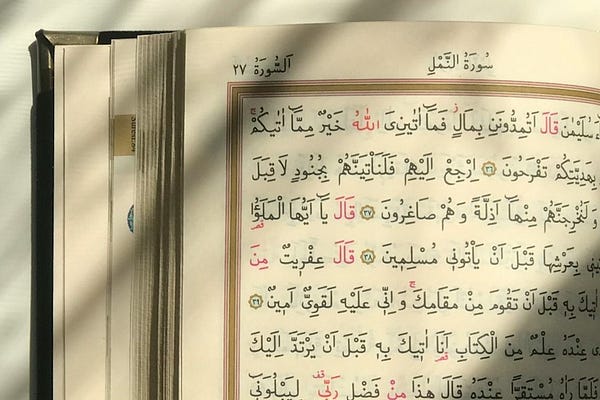 سُورَةُ النَّمْلِ اَلسُّورَةُ ٢٧
سُلَيْمٰنَ قَالَ اَتُمِدُّونَنِ بِمَالٍ فَمَٓا اٰتٰينِىَ اللّٰهُ خَيْرٌ مِمَّٓا اٰتٰيكُمْ
بِهَدِيَّتِكُمْ تَفْرَحُونَ ٣٦ اِرْجِعْ اِلَيْهِمْ فَلَنَأْتِيَنَّهُمْ بِجُنُودٍ لَا قِبَلَ
وَلَنُخْرِجَنَّهُمْ مِنْهَٓا اَذِلَّةً وَهُمْ صَاغِرُونَ ٣٧ قَالَ يَٓا اَيُّهَا الْمَلَؤُا
بِعَرْشِهَا قَبْلَ اَنْ يَأْتُونٖى مُسْلِمٖينَ ٣٨ قَالَ عِفْرٖيتٌ مِنَ
اٰتٖيكَ بِهٖ قَبْلَ اَنْ تَقُومَ مِنْ مَقَامِكَ وَاِنّٖى عَلَيْهِ لَقَوِىٌّ اَمٖينٌ ٣٩
عِنْدَهُ عِلْمٌ مِنَ الْكِتَابِ اَنَا اٰتٖيكَ بِهٖ قَبْلَ اَنْ يَرْتَدَّ اِلَيْكَ
فَلَمَّا رَاٰهُ مُسْتَقِرًّا عِنْدَهُ قَالَ هٰذَا مِنْ فَضْلِ رَبّٖى لِيَبْلُوَنٖى